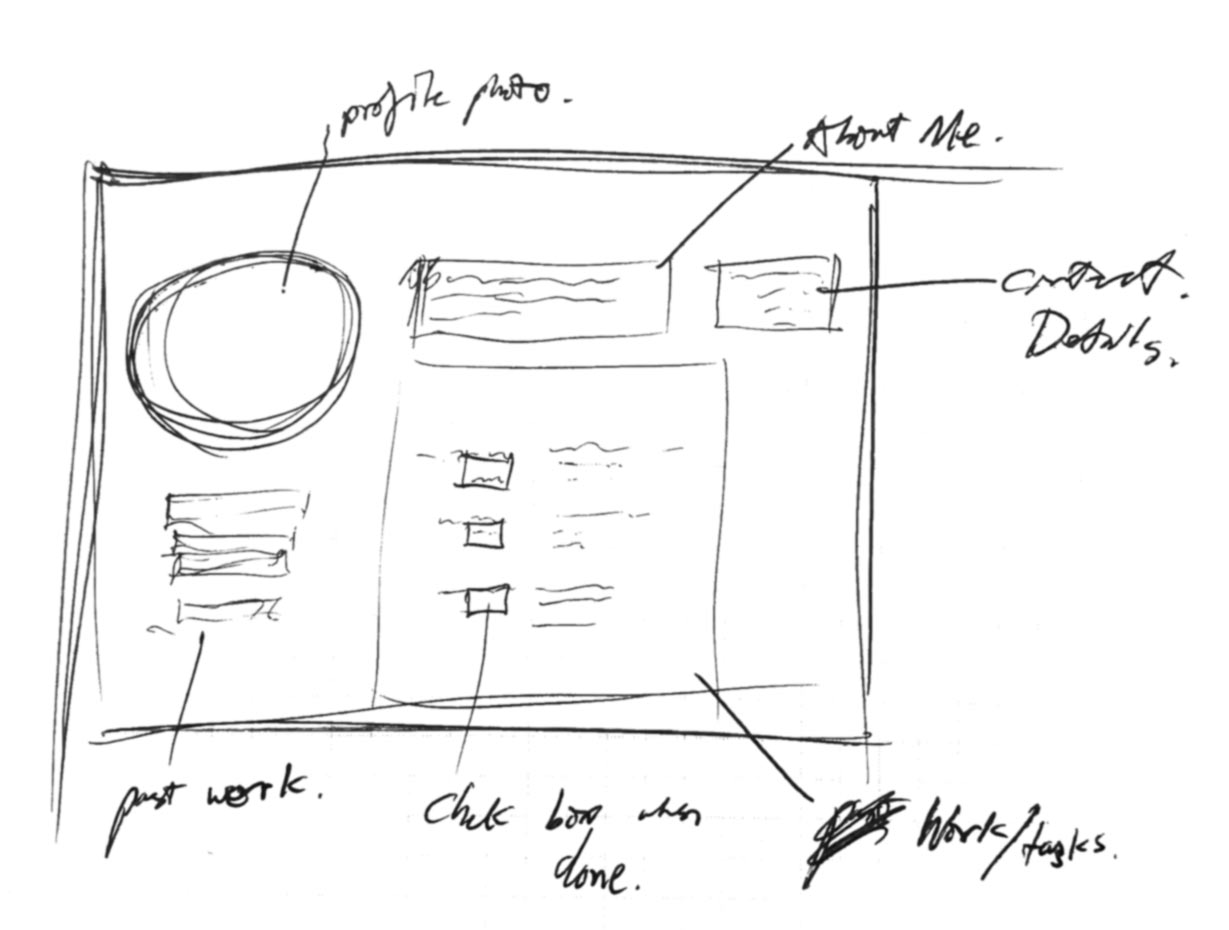 profile photo.
About Me.
Contact.
Details.
past work.
Chek box when
done.
Work/tasks.